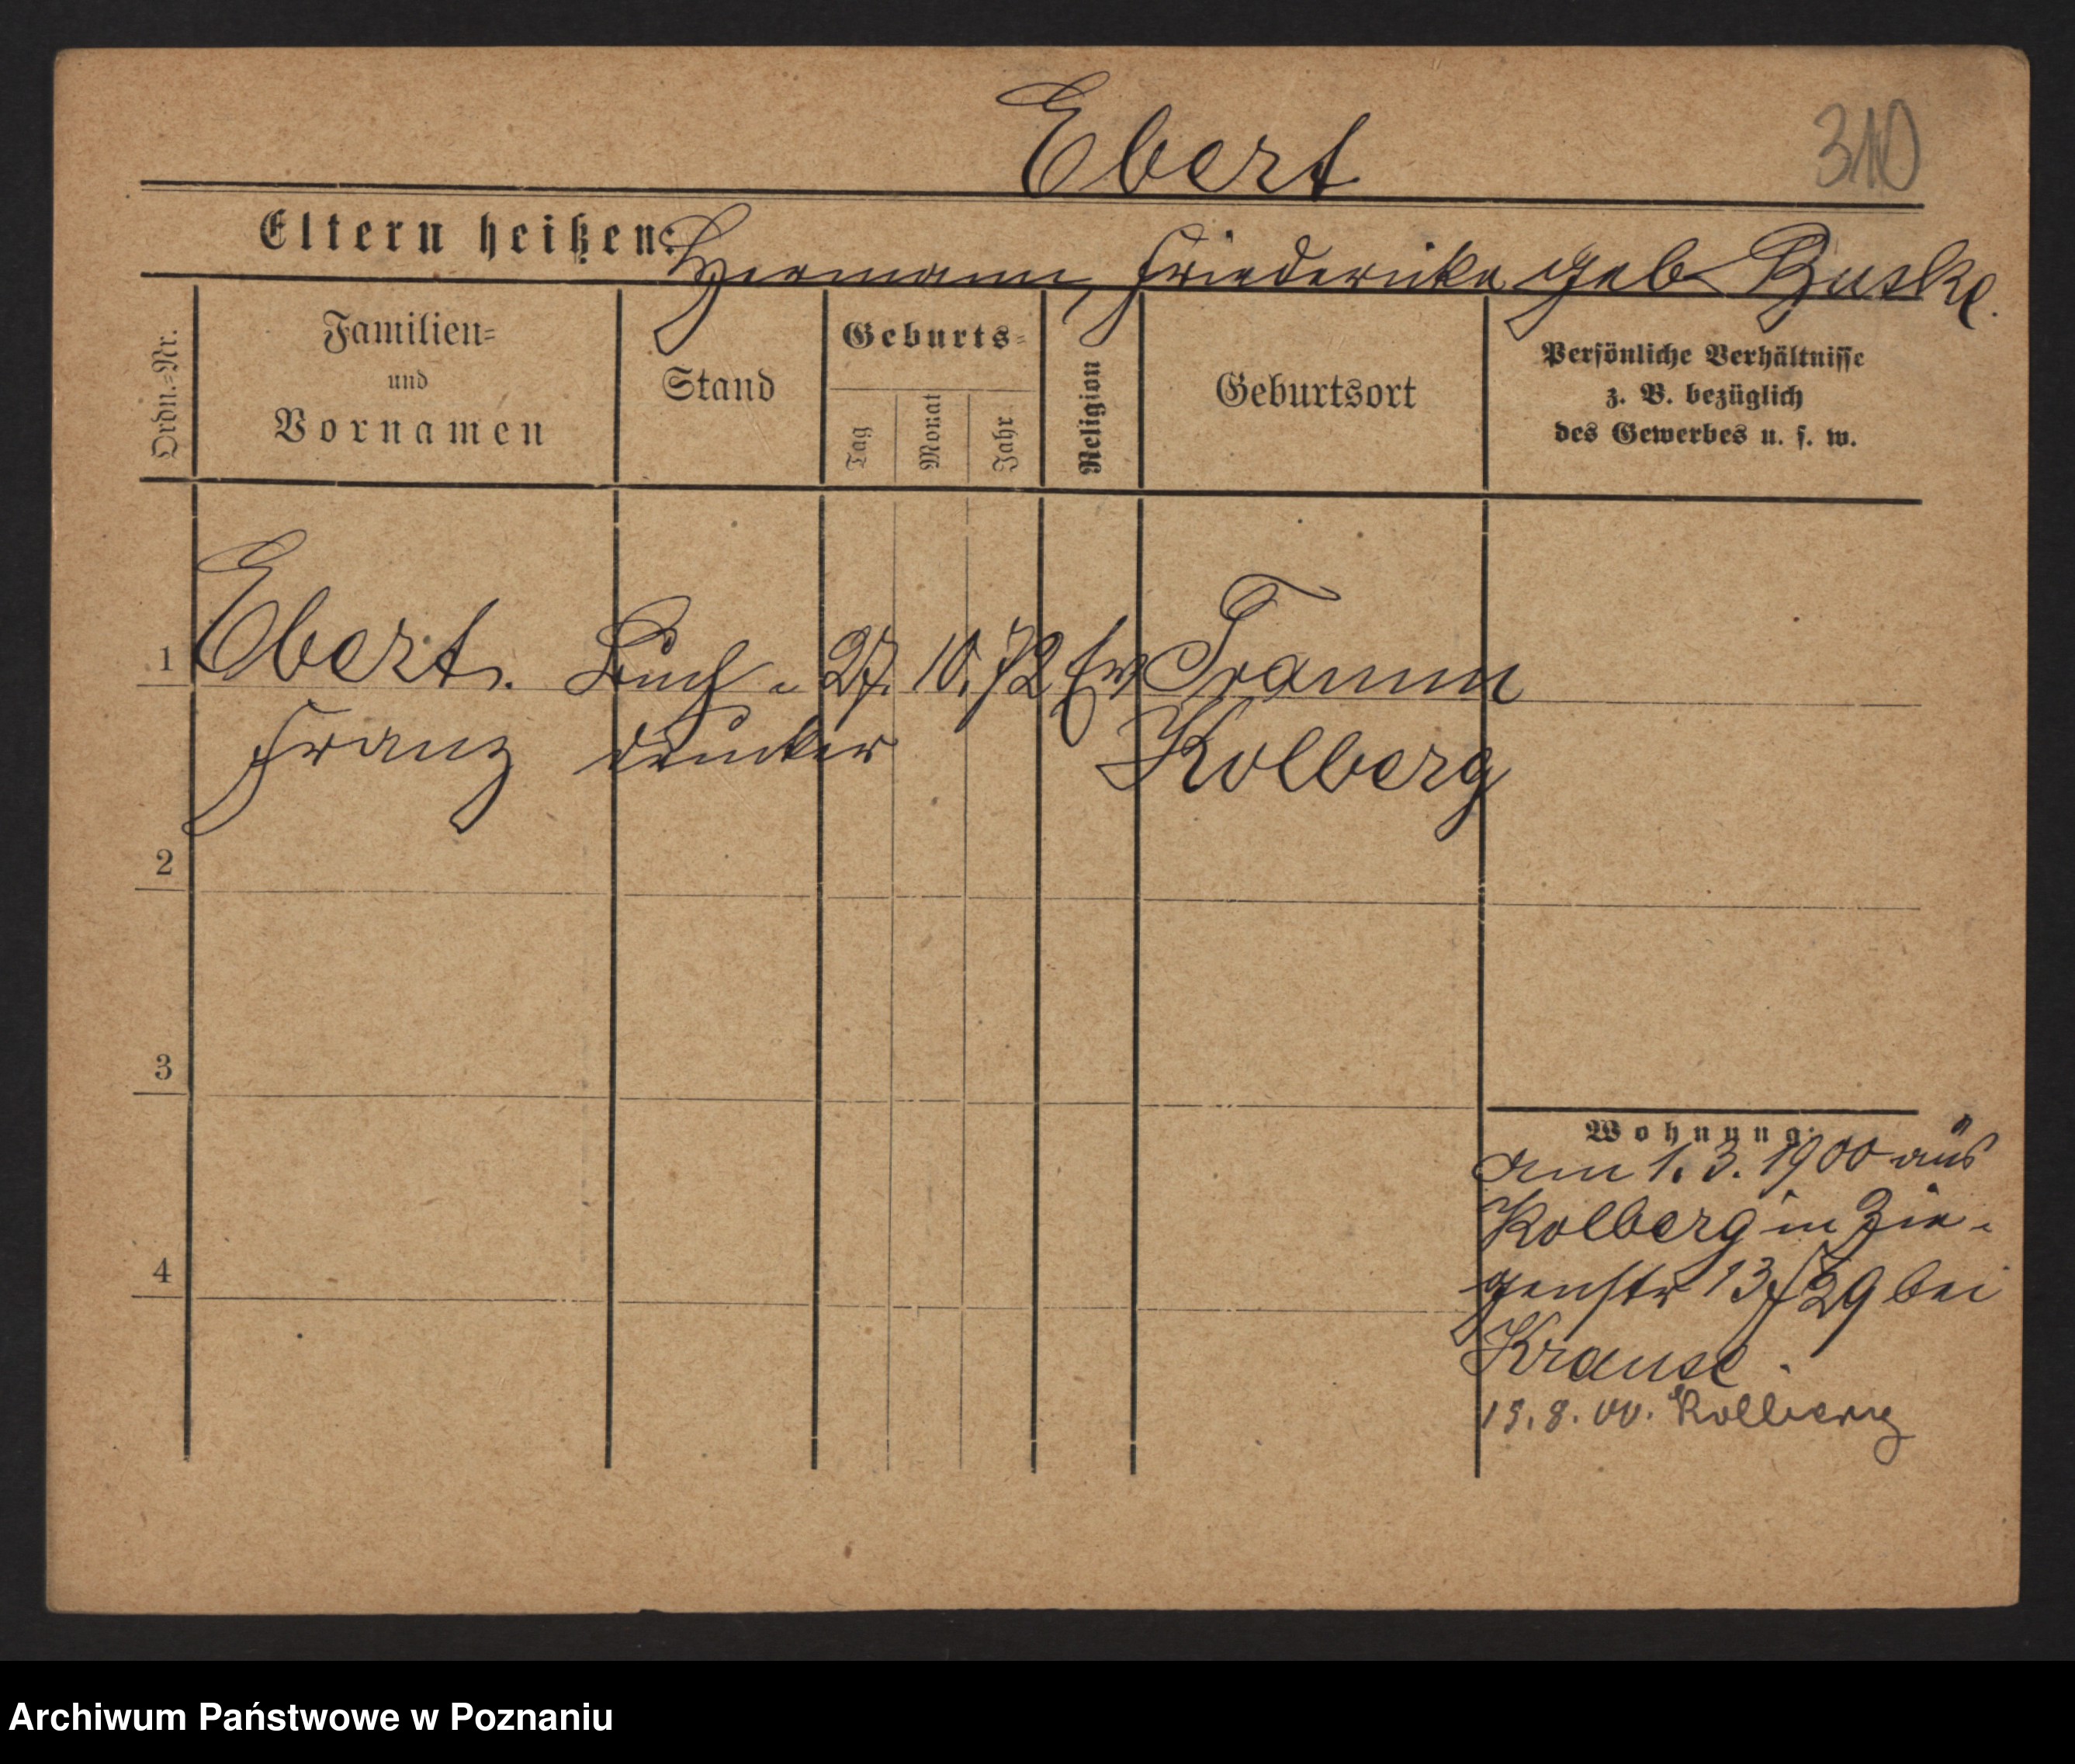 Ebert
310
Eltern heißen: Hermann, Friedericke geb Buske.
Ordn.=Nr.
Familien=
und
Vornamen
Stand
Geburts=
Tag
Monat
Jahr
Religion
Geburtsort
Persönliche Verhältnisse
z. B. bezüglich
des Gewerbes u. s. w.
1 Ebert. Buch- 27. 10. 72 Ev Tramm
Franz drucker Kolberg
2
3
4
Wohnung:
am 1. 3. 1900 aus
Kolberg in Zie-
genstr 13/29 bei
Krause.
19. 8. 00. Kolberg
Archiwum Państwowe w Poznaniu